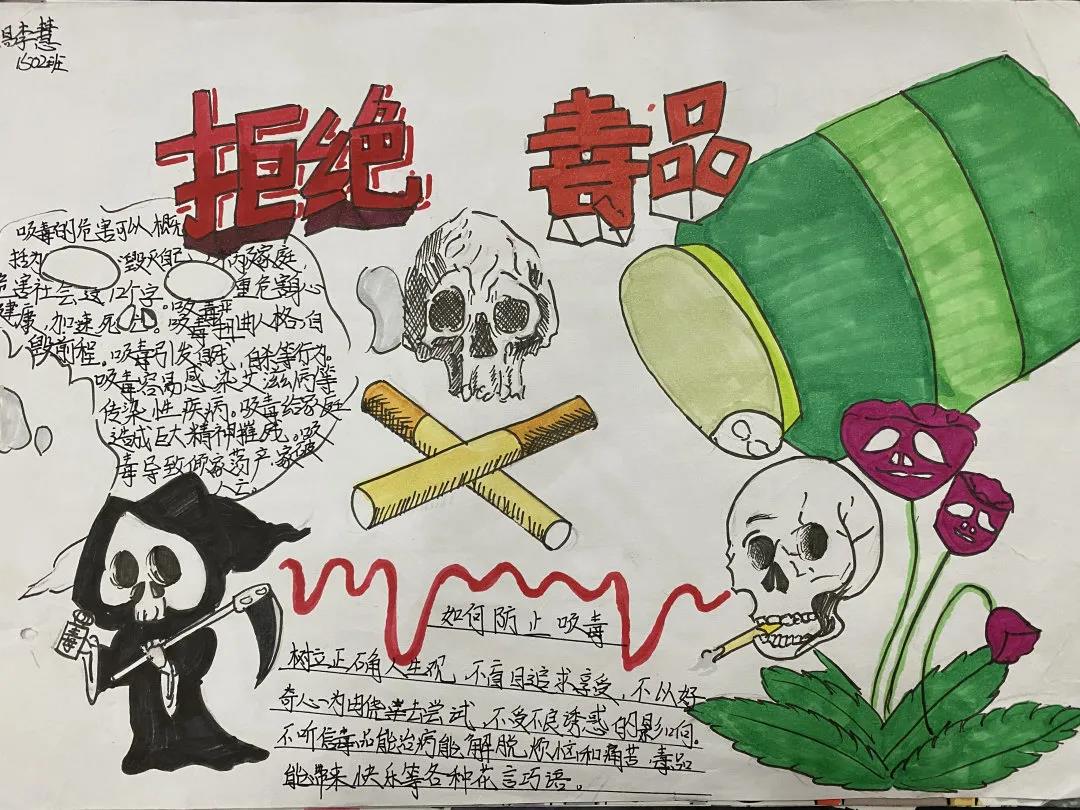 李慧
1502班
拒绝 毒品
吸毒的危害可以概
括为 毁灭自己 祸及家庭,
危害社会这12个字。吸毒严重危害身心
健康,加速死亡。吸毒扭曲人格,自
毁前程。吸毒引发自残,自杀等行为。
吸毒容易感染艾滋病等
传染性疾病。吸毒给家庭
造成巨大精神摧残。吸
毒导致倾家荡产家破
人亡。
毒
如何防止吸毒
树立正确人生观,不盲目追求享受,不以好
奇心为由侥幸去尝试,不受不良诱惑的影响。
不听信毒品能治病能解脱烦恼和痛苦,毒品
能带来快乐等各种花言巧语。